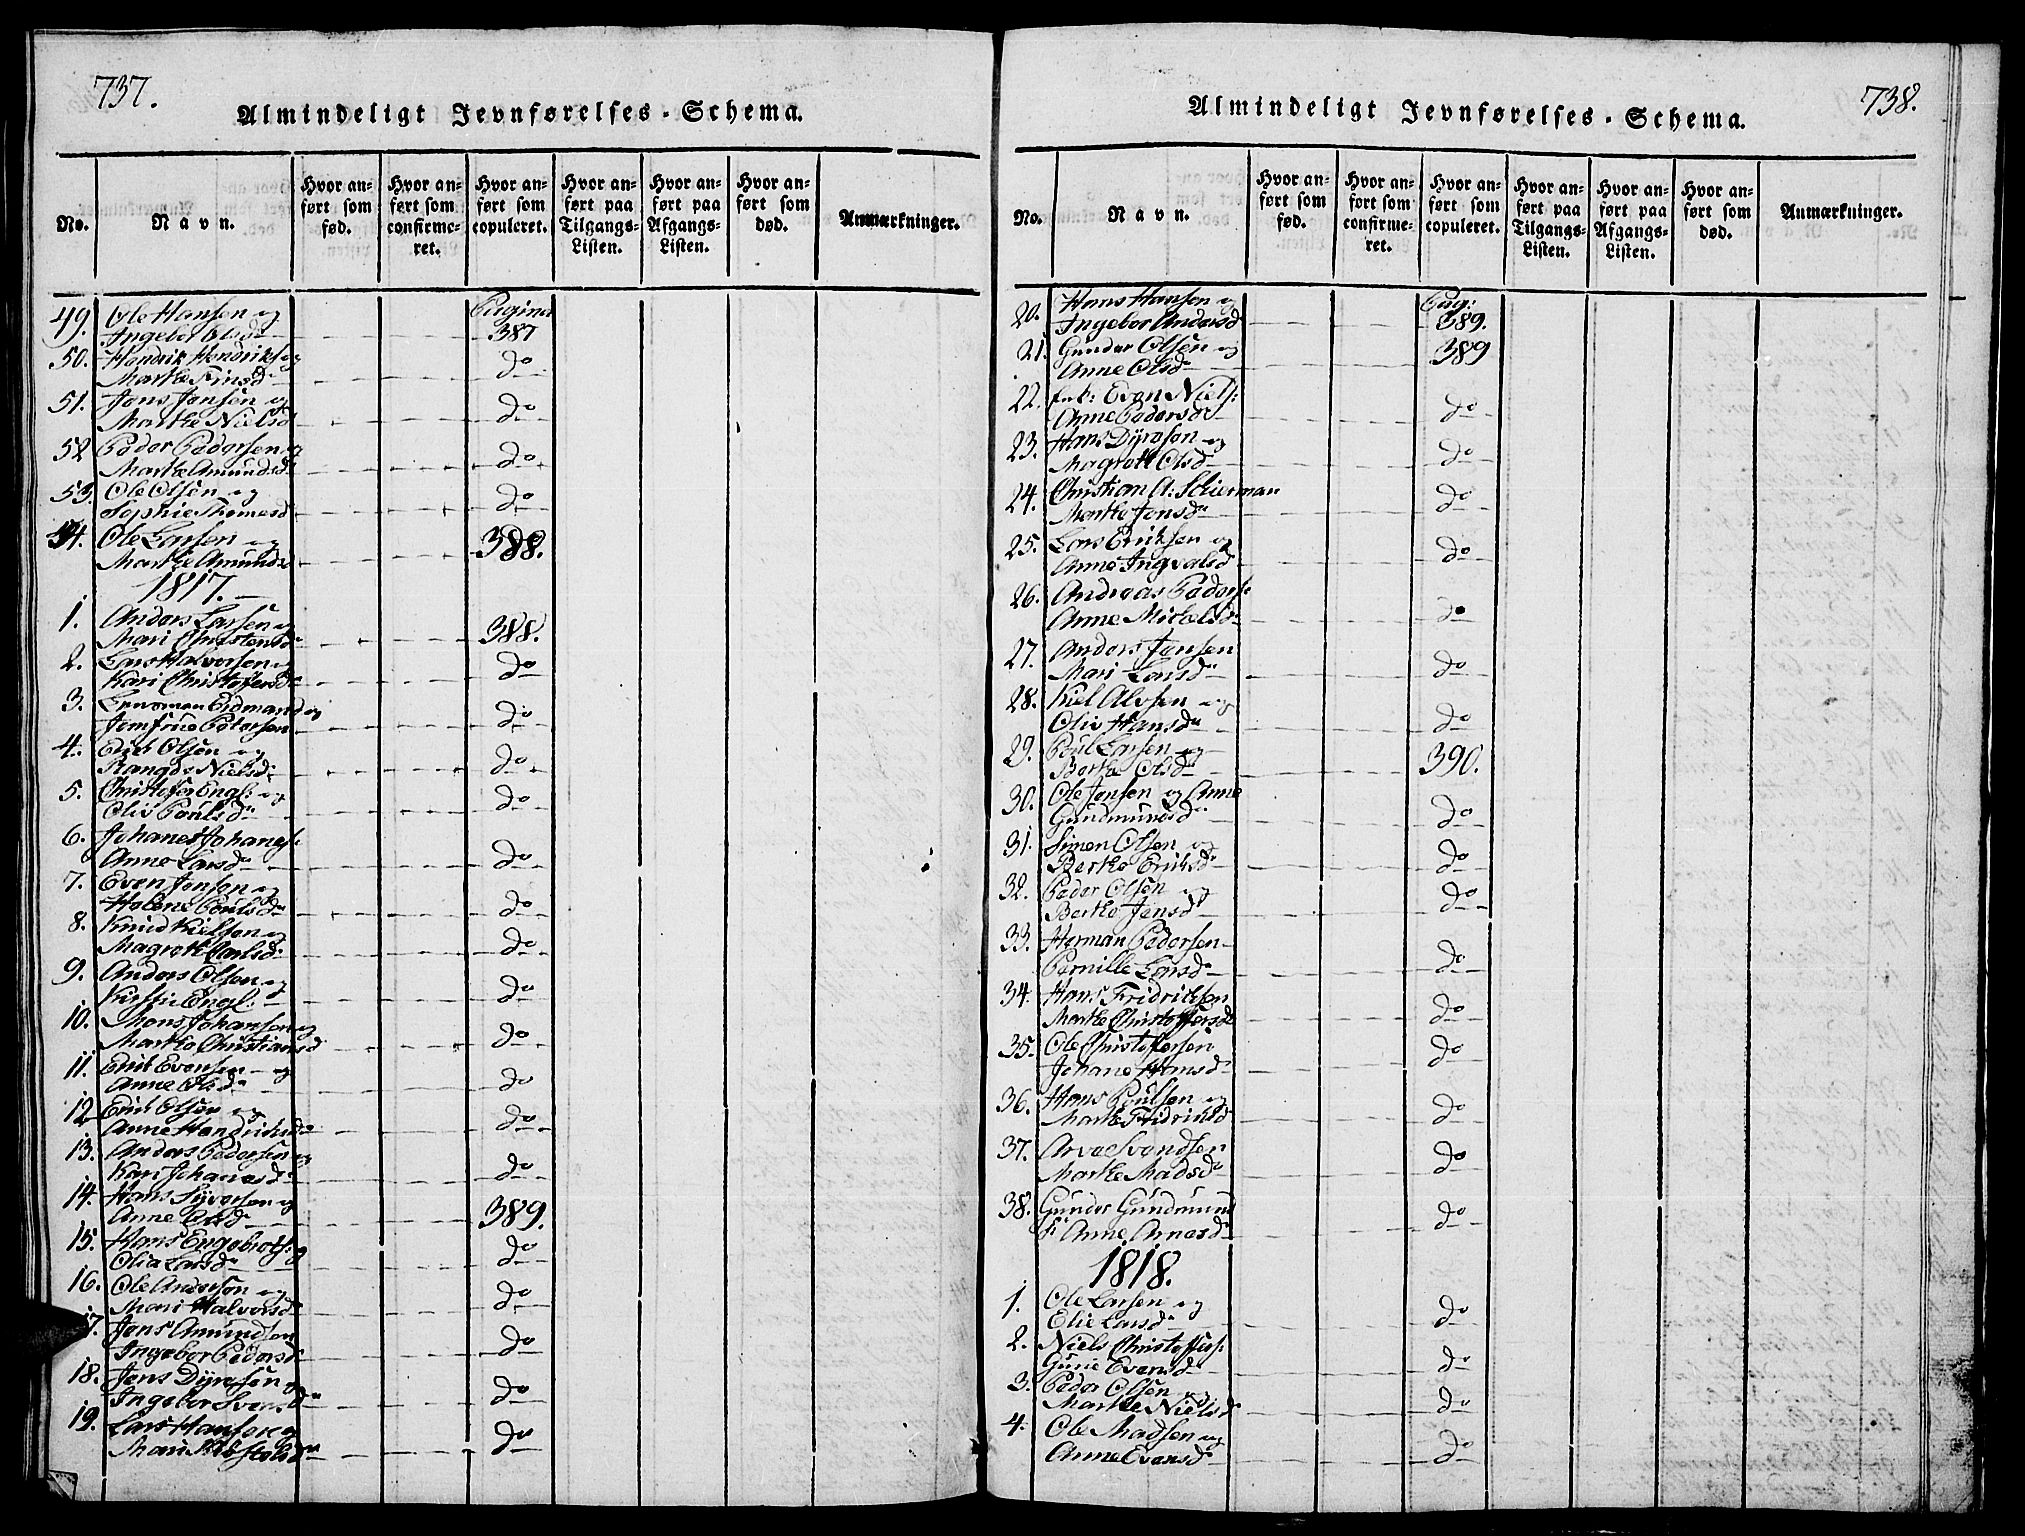 737.
Almindeligt Jevnførelses-Schema.
No.
Navn.
Hvor anført som fød.
Hvor anført som confirmeret.
Hvor anført som copuleret.
Hvor anført paa Tilgangs-Listen.
Hvor anført paa Afgangs-Listen.
Hvor anført som død.
Anmærkninger.
49. Ole Hansen og Pagina
Ingebor Olsd 387
50. Hendrik Hendriks og
Marthe Finsd do
51. Jens Jensen og
Marthe Nielsd do
52 Peder Pedersen og
Marthe Amundsd do
53. Ole Olsen og
Sophie Thomesd do
54. Ole Larsen og
Marthe Amunds 388.
1817.
1. Anders Larsen og
Mari Christensd 388.
2. Lars Halvorsen og
Kari Christofersd do
3. Lensman Edmand og
Jomfrue Petersen do
4. Erich Olsen og
Rangde Nielsd. do
5. Christofer Engs: og
Oliv Poulsd do
6. Johanes Johanes:
Anne Larsd do
7. Even Jensen og
Helene Poulsd do
8. Knud Kielsen og
Magrethe Carlsd do
9. Anders Olsen og
Kirsti Engl: do
10. Mons Johansen og
Marthe Christiansd do
11. Erich Evensen og
Anne Olsd do
12 Erich Olsen og
Anne Hendrichsd do
13. Anders Pedersen og
Kari Johanesd do
14. Hans Syversen og
Anne Olsd 389.
15. Hans Engebrets: og
Olia Larsd do
16. Ole Andersen og
Mari Halvorsd do
17. Jens Amundsen
Ingebor Pedersd do
18. Jens Dyresen og
Ingebor Svensd do
19. Lars Hansen og
Mari do
738.
Almindeligt Jevnførelses-Schema.
No.
Navn.
Hvor anført som fød.
Hvor anført som confirmeret.
Hvor anført som copuleret.
Hvor anført paa Tilgangs-Listen.
Hvor anført paa Afgangs-Listen.
Hvor anført som død.
Anmærkninger.
20. Hans Hansen og Pag:
Ingebor Andersd 389.
21. Gunder Olsen og 389
Anne Olsd
22. Enk: Even Niels:
Anne Pedersdr do
23. Hans Dyresen og
Magreth Olsd do
24. Christian A: Schierman
Marthe Jensd do
25. Lars Eriksen og
Anne Ingvalsd do
26. Andreas Peders:
Anne Mikelsd do
27. Anders Jensen
Mari Larsd do
28. Kiel Alvsen og
Oliv Hansd do
29. Poul Larsen og
Berthe Olsd 390.
30. Ole Jensen og Anne
Gundmundsd do
31. Simen Olsen og
Berthe Eriksd do
32. Peder Olsen og
Berthe Jensd do
33. Herman Pedersen
Pernille Larsd do
34. Hans Fridriksen
Marthe Christoffersd do
35. Ole Christofersen
Johane Hansd do
36. Hans Poulsen og
Marthe Fridriksd do
37. Arve Svendsen
Marthe Madsd do
38. Gunder Gundmund
s: Anne Arnesd do
1818.
1. Ole Larsen og
Elie Larsd do
2. Niels Christoffers:
Gurie Evensd do
3. Peder Olsen og
Marthe Nielsd do
4. Ole Madsen og
Anne Evensd do